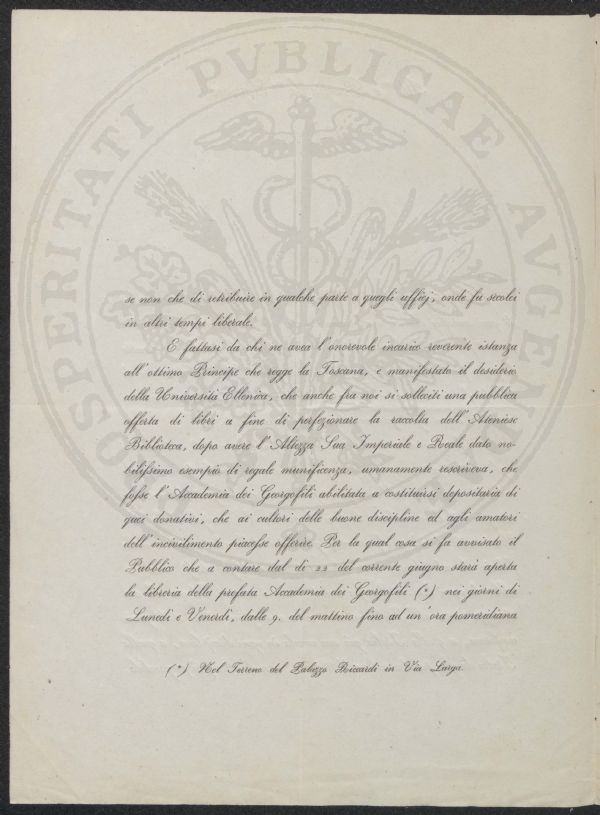 PROSPERITATI PVBLICAE AVGENDAE
se non che di retribuire in qualche parte a quegli ufficj, onde fu secolei
in altri tempi liberale.
E fattasi da chi ne avea l'onorevole incarico reverente istanza
all'ottimo Principe che regge la Toscana, e manifestato il desiderio
della Università Ellenica, che anche fra noi si solleciti una pubblica
offerta di libri a fine di perfezionare la raccolta dell'Ateniese
Biblioteca, dopo avere l'Altezza Sua Imperiale e Reale dato no-
bilissimo esempio di regale munificenza, umanamente rescriveva, che
fosse l'Accademia dei Georgofili abilitata a costituirsi depositaria di
quei donativi, che ai cultori delle buone discipline ed agli amatori
dell'incivilimento piacesse offerire. Per la qual cosa si fa avvisato il
Pubblico che a contare dal dì 22 del corrente giugno starà aperta
la libreria della prefata Accademia dei Georgofili (*) nei giorni di
Lunedì e Venerdì, dalle 9. del mattino fino ad un'ora pomeridiana
(*) Nel Terreno del Palazzo Riccardi in Via Larga.